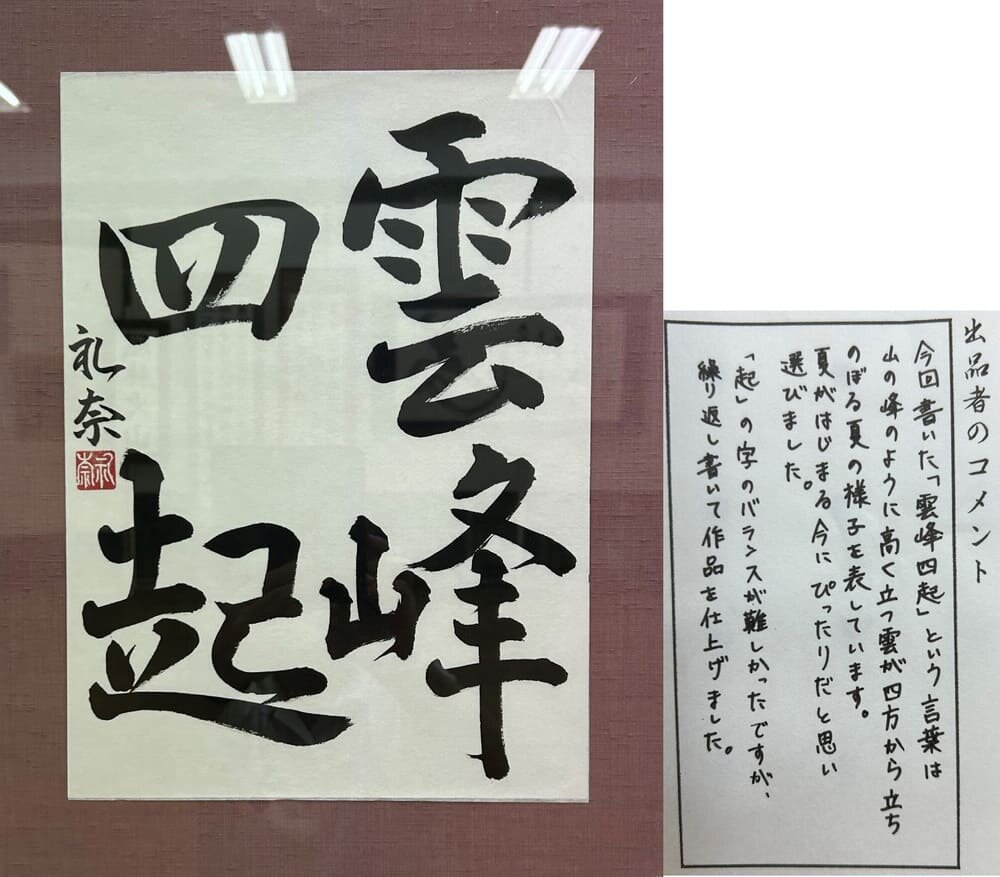 雲峰
四起
礼奈
礼奈
出品者のコメント
今回書いた「雲峰四起」という言葉は
山の峰のように高く立つ雲が四方から立ち
のぼる夏の様子を表しています。
夏がはじまる今にぴったりだと思い
選びました。
「起」の字のバランスが難しかったですが、
繰り返し書いて作品を仕上げました。